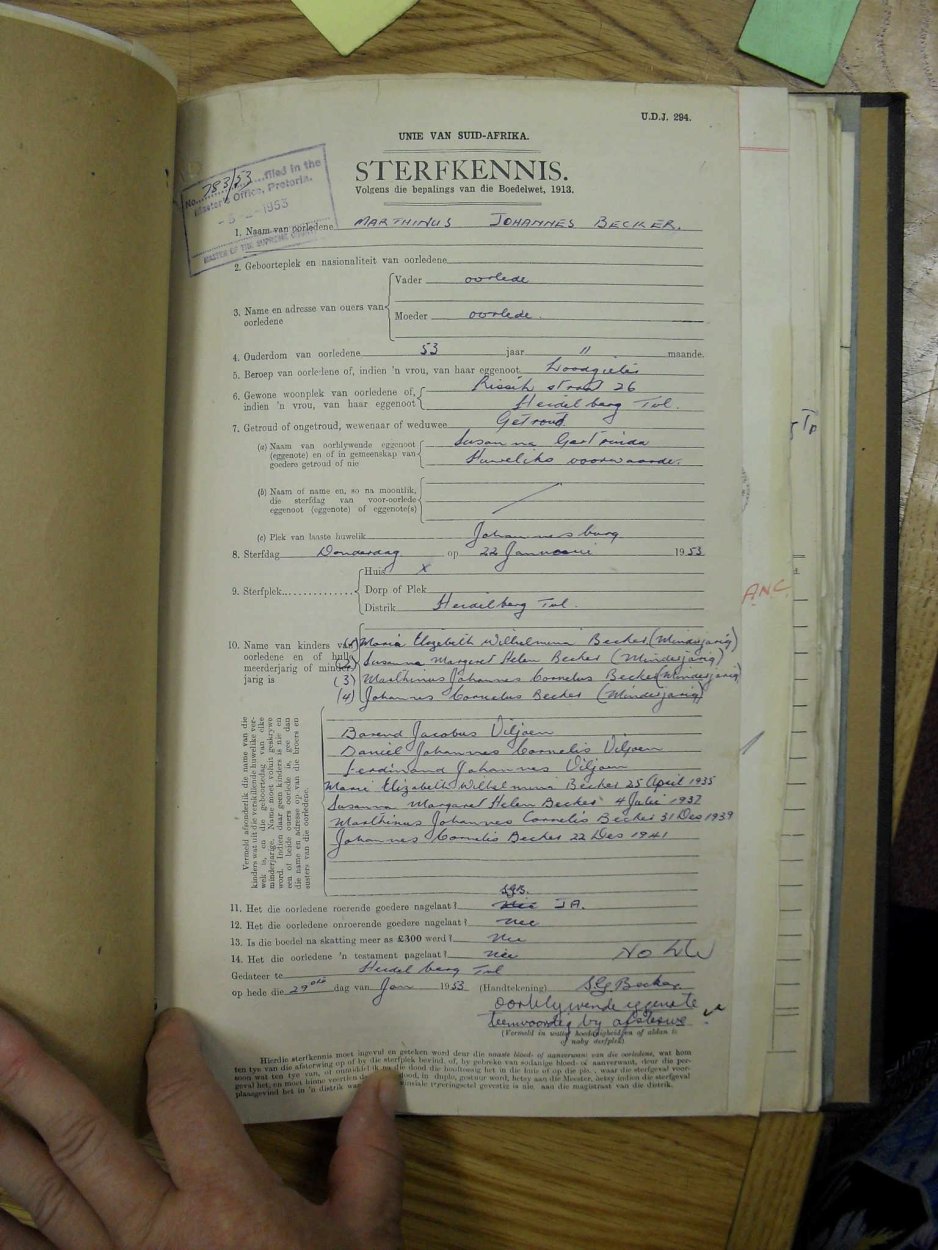 U.D.J. 294.
UNIE VAN SUID-AFRIKA.
STERFKENNIS.
Volgens die bepalings van die Boedelwet, 1913.
No. 783/53 filed in the
Master's Office, Pretoria.
1953
MASTER OF THE SUPREME COURT
1. Naam van oorledene MARTHINUS JOHANNES BECKER.
2. Geboorteplek en nasionaliteit van oorledene
3. Name en adresse van ouers van oorledene
Vader oorlede
Moeder oorlede.
4. Ouderdom van oorledene 53 jaar " maande.
5. Beroep van oorledene of, indien 'n vrou, van haar eggenoot Loodgieter
6. Gewone woonplek van oorledene of, indien 'n vrou, van haar eggenoot
Rissik straat 26
Heidelberg Tvl.
7. Getroud of ongetroud, wewenaar of weduwee Getroud.
(a) Naam van oorblywende eggenoot (eggenote) en of in gemeenskap van goedere getroud of nie
Susanna Gertruida
Huweliks voorwaarde.
(b) Naam of name en, so na moontlik, die sterfdag van voor-oorlede eggenoot (eggenote) of eggenote(s)
(c) Plek van laaste huwelik Johannesburg
8. Sterfdag Donderdag op 22 Januarie 1953
9. Sterfplek
Huis X
Dorp of Plek
Distrik Heidelberg Tvl.
A.N.C.
10. Name van kinders van oorledene en of hulle meerderjarig of minderjarig is
(1) Maria Elizabeth Wilhelmina Becker (Minderjarig)
(2) Susanna Margaret Helen Becker (Minderjarig)
(3) Marthinus Johannes Cornelus Becker (Minderjarig)
(4) Johannes Cornelus Becker (Minderjarig)
Vermeld afsonderlik die name van die kinders wat uit die verskillende huwelike verwek is, en die geboortedag van elke minderjarige. Name moet voluit geskrywe word. Indien daar geen kinders is nie en een of beide ouers oorlede is, gee dan die name en adresse op van die broers en susters van die oorledene.
Barend Jacobus Viljoen
Daniel Johannes Cornelis Viljoen
Ferdinand Johannes Viljoen
Marie Elizabeth Wilhelmina Becker 25 April 1935
Susanna Margaret Helen Becker 4 Julie 1937
Marthinus Johannes Cornelis Becker 31 Des 1939
Johannes Cornelis Becker 22 Des 1941
SGB.
11. Het die oorledene roerende goedere nagelaat? Nee JA.
12. Het die oorledene onroerende goedere nagelaat? nee
13. Is die boedel na skatting meer as £300 werd? Nee
14. Het die oorledene 'n testament nagelaat? nee
Gedateer te Heidelberg Tvl
op hede die 29ste dag van Jan 1953 (Handtekening) S G Becker
oorblywende eggenote
teenwoordig by afsterwe
(Vermeld in watter hoedanigheid en of aldan is of naby sterfplek)
Hierdie sterfkennis moet ingevul en geteken word deur die naaste bloed- of aanverwant van die oorledene, wat